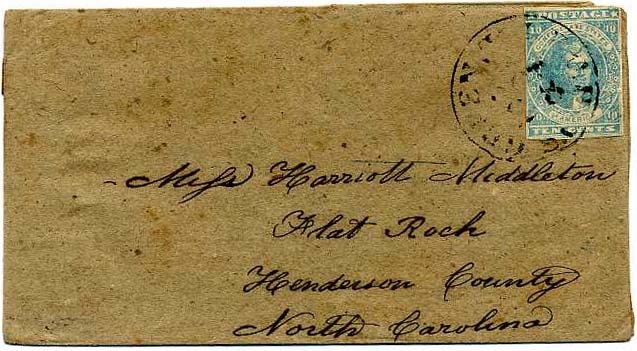 POSTAGE
10 10
OF AMERICA
10 10
TEN CENTS
Miss Harriott Middleton
Flat Rock
Henderson County
North Carolina